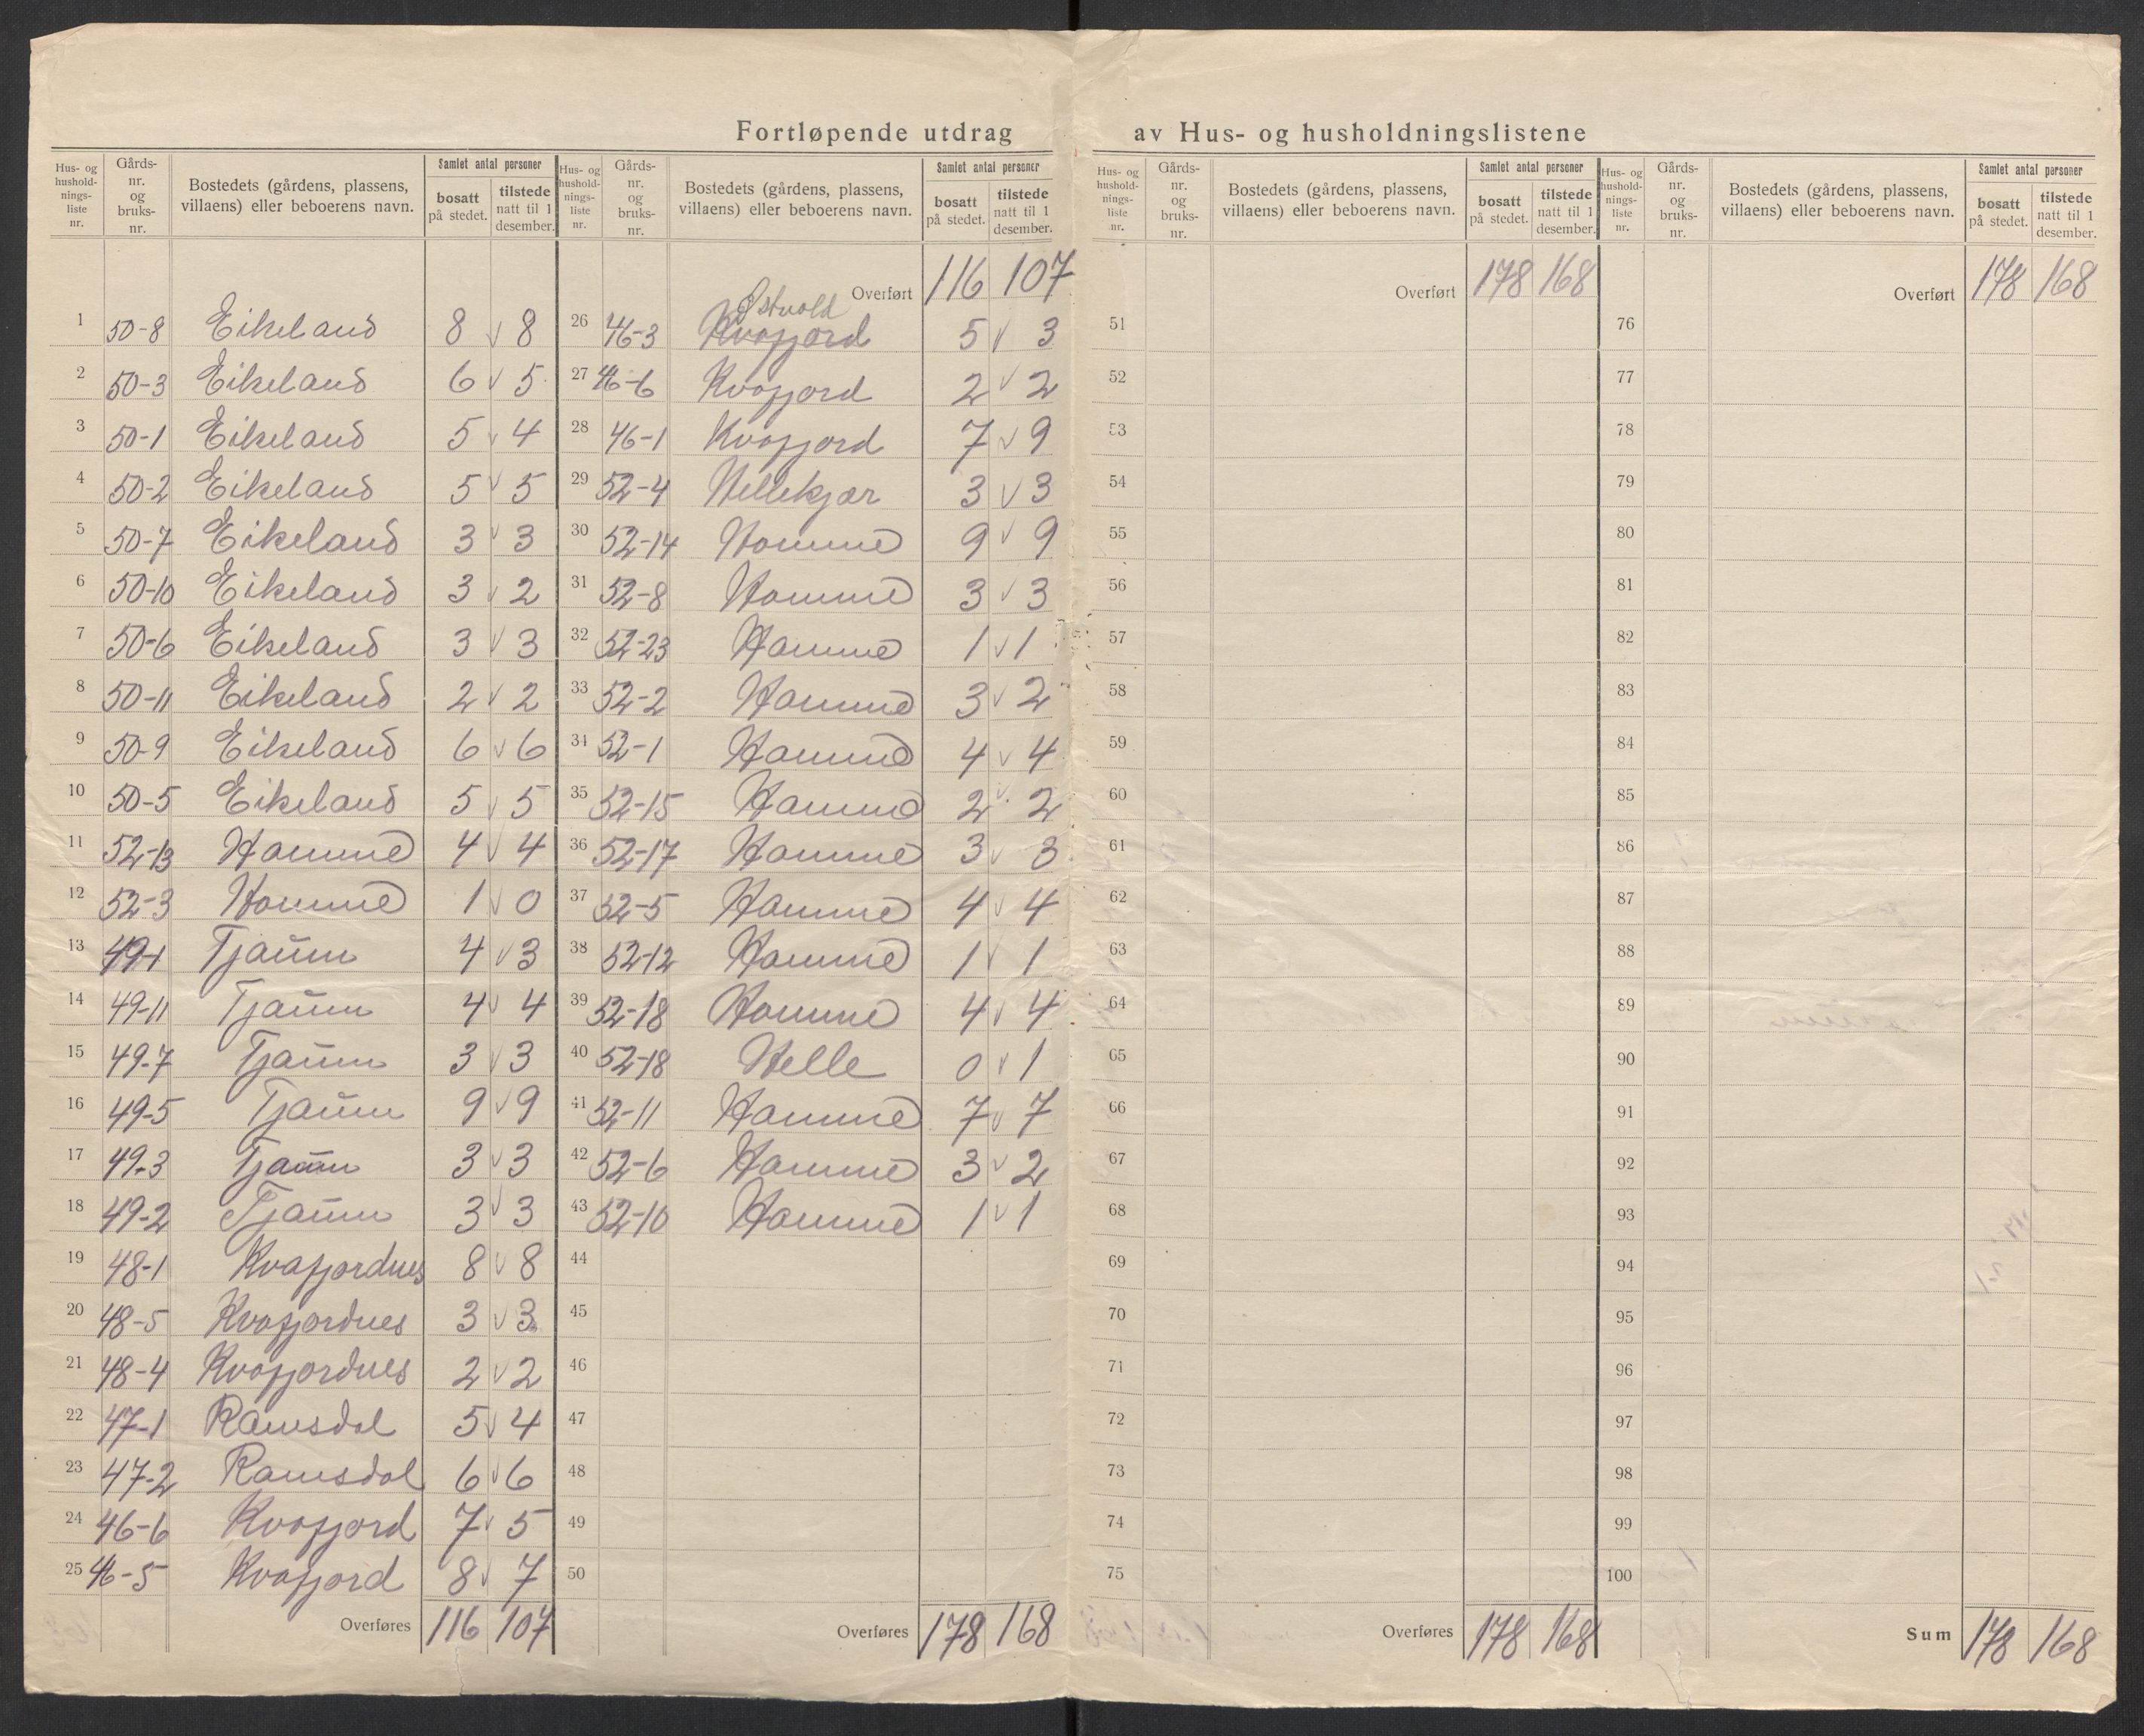 Fortløpende utdrag av Hus- og husholdningslistene
Hus- og hushold-nings-liste nr. | Gårds-nr. og bruks-nr. | Bostedets (gårdens, plassens, villaens) eller beboerens navn. | Samlet antal personer | bosatt på stedet. | tilstede natt til 1 desember.
1 50-8 Eikeland 8 v 8
2 50-3 Eikeland 6 v 5
3 50-1 Eikeland 5 v 4
4 50-2 Eikeland 5 v 5
5 50-7 Eikeland 3 v 3
6 50-10 Eikeland 3 v 2
7 50-6 Eikeland 3 v 3
8 50-11 Eikeland 2 v 2
9 50-9 Eikeland 6 v 6
10 50-5 Eikeland 5 v 5
11 52-13 Hamme 4 v 4
12 52-3 Homme 1 v 0
13 49-1 Tjaum 4 v 3
14 49-11 Tjaum 4 v 4
15 49-7 Tjaum 3 v 3
16 49-5 Tjaum 9 v 9
17 49-3 Tjaum 3 v 3
18 49-2 Tjaum 3 v 3
19 48-1 Kvafjordnes 8 v 8
20 48-5 Kvafjordnes 3 v 3
21 48-4 Kvafjordnes 2 v 2
22 47-1 Ramsdal 5 v 4
23 47-2 Ramsdal 6 v 6
24 46-6 Kvafjord 7 v 5
25 46-5 Kvafjord 8 v 7
Overføres 116 107
Hus- og hushold-nings-liste nr. | Gårds-nr. og bruks-nr. | Bostedets (gårdens, plassens, villaens) eller beboerens navn. | Samlet antal personer | bosatt på stedet. | tilstede natt til 1 desember.
Overført 116 107
Østvold
26 46-3 Kvafjord 5 v 3
27 46-6 Kvafjord 2 v 2
28 46-1 Kvafjord 7 v 9
29 52-4 Hellekjær 3 v 3
30 52-14 Homme 9 v 9
31 52-8 Homme 3 v 3
32 52-23 Hamme 1 v 1
33 52-2 Hamme 3 v 2
34 52-1 Hamme 4 v 4
35 52-15 Hamme 2 v 2
36 52-17 Hamme 3 v 3
37 52-5 Hamme 4 v 4
38 52-12 Hamme 1 v 1
39 52-18 Homme 4 v 4
40 52-18 Helle 0 v 1
41 52-11 Hamme 7 v 7
42 52-6 Hamme 3 v 2
43 52-10 Hamme 1 v 1
44
45
46
47
48
49
50
Overføres 178 168
Hus- og hushold-nings-liste nr. | Gårds-nr. og bruks-nr. | Bostedets (gårdens, plassens, villaens) eller beboerens navn. | Samlet antal personer | bosatt på stedet. | tilstede natt til 1 desember.
Overført 178 168
51
52
53
54
55
56
57
58
59
60
61
62
63
64
65
66
67
68
69
70
71
72
73
74
75
Overføres 178 168
Hus- og hushold-nings-liste nr. | Gårds-nr. og bruks-nr. | Bostedets (gårdens, plassens, villaens) eller beboerens navn. | Samlet antal personer | bosatt på stedet. | tilstede natt til 1 desember.
Overført 178 168
76
77
78
79
80
81
82
83
84
85
86
87
88
89
90
91
92
93
94
95
96
97
98
99
100
Sum 178 168